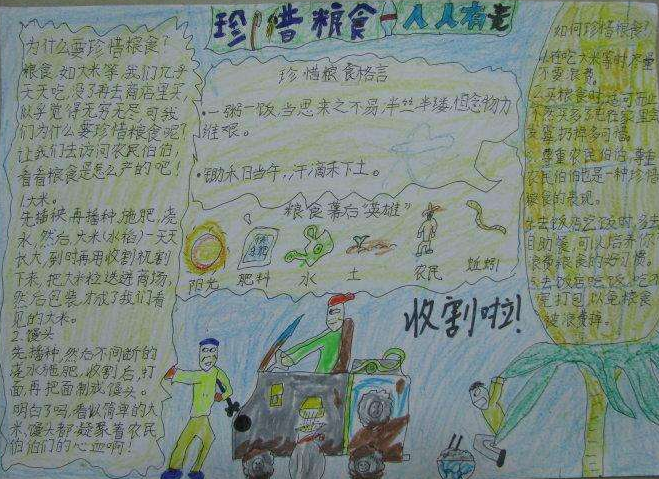 珍惜粮食-人人有责
为什么要珍惜粮食?
粮食,如大米等,我们几乎
天天吃,没了再去商店里买,
似乎觉得无穷无尽,可我
们为什么要珍惜粮食呢?
让我们去访问农民伯伯,
看看粮食是怎么产的吧!
1.大米。
先插秧,再播种,施肥,浇
水,然后,大米(水稻)一天天
长大,到时再用收割机割
下来,把大米粒送进商场,
然后包装,才成了我们看
见的大米。
2.馒头
先播种,然后不间断的
浇水施肥,收割后,打
面,再把面制成馒头。
明白了吗,看似简单的大
米,馒头都凝聚着农民
伯伯们的心血啊!
珍惜粮食格言
·一粥一饭,当思来之不易;半丝半缕,恒念物力
维艰。
·锄禾日当午,汗滴禾下土。
粮食幕后"英雄"
阳光
肥料
水
土
农民
蚯蚓
收割啦!
如何珍惜粮食?
1.在吃大米等时,尽量
不要浪费。
2.买粮食时,适可而止,
不然买多了
3.尊重农民伯伯,尊重
农民伯伯也是一种珍惜
粮食的表现。
4.去饭店吃饭时,多去
自助餐,可以培养你
的好习惯。
5.去饭店吃饭,吃不
完打包,以免粮食
被浪费掉。